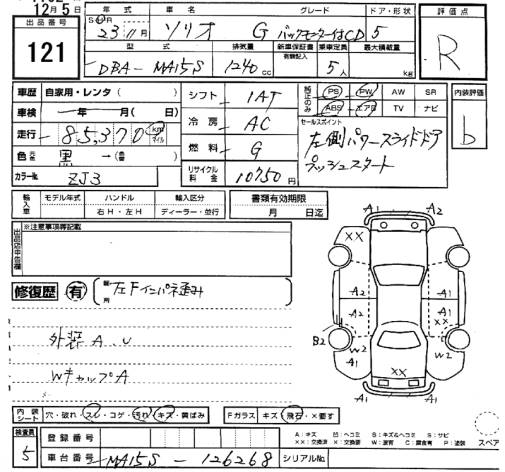 12月5日
出品番号
121
年式 車名 グレード ドア・形状
23 11月 ソリオ G バックモニター付CD 5
型式 排気量 新車保証書 有額記入 乗車定員 最大積載量
DBA-MA15S 1240 cc 5人 kg
評価点
R
車歴 自家用・レンタ( )
車検 年 月( 日)
走行 85,370 km マイル
色 元色 黒 →(  )
カラーNo. ZJ3
シフト 1AT
冷房 AC
燃料 G
リサイクル料金 10750円
純正のみ
PS PW AW SR
ABS エアB TV ナビ
セールスポイント
左側パワースライドドア
プッシュスタート
内装評価
b
輸入車 モデル年式 ハンドル 輸入区分
年 右H・左H ディーラー・並行
書類有効期限
月 日迄
出品店申告欄
※注意事項等記載
修復歴 有 左Fインパネ歪み
外装A、U
WキャップA
A1 A2
XX
A1
A2 A1
XX
B2 W2 W2
A1 XX A1
内装シート 穴・破れ・スレ・コゲ・汚れ・キズ・黄ばみ
Fガラス キズ・飛石・×要す
検査員
5
登録番号
車台番号 MA15S-126268
シリアルNo.
A:キズ U:ヘコミ B:キズ&ヘコミ S:サビ
XX:交換済 X:要交換 W:波有 C:腐食有 P:塗装
スペア